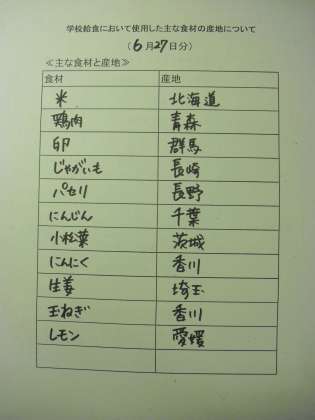 学校給食において使用した主な食材の産地について
(6月27日分)
≪主な食材と産地≫
食材 産地
米 北海道
鶏肉 青森
卵 群馬
じゃがいも 長崎
パセリ 長野
にんじん 千葉
小松菜 茨城
にんにく 香川
生姜 埼玉
玉ねぎ 香川
レモン 愛媛